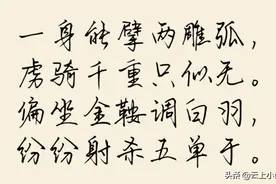 一身能擘两雕弧，
虏骑千重只似无。
偏坐金鞍调白羽，
纷纷射杀五单于。
头条 @云上小